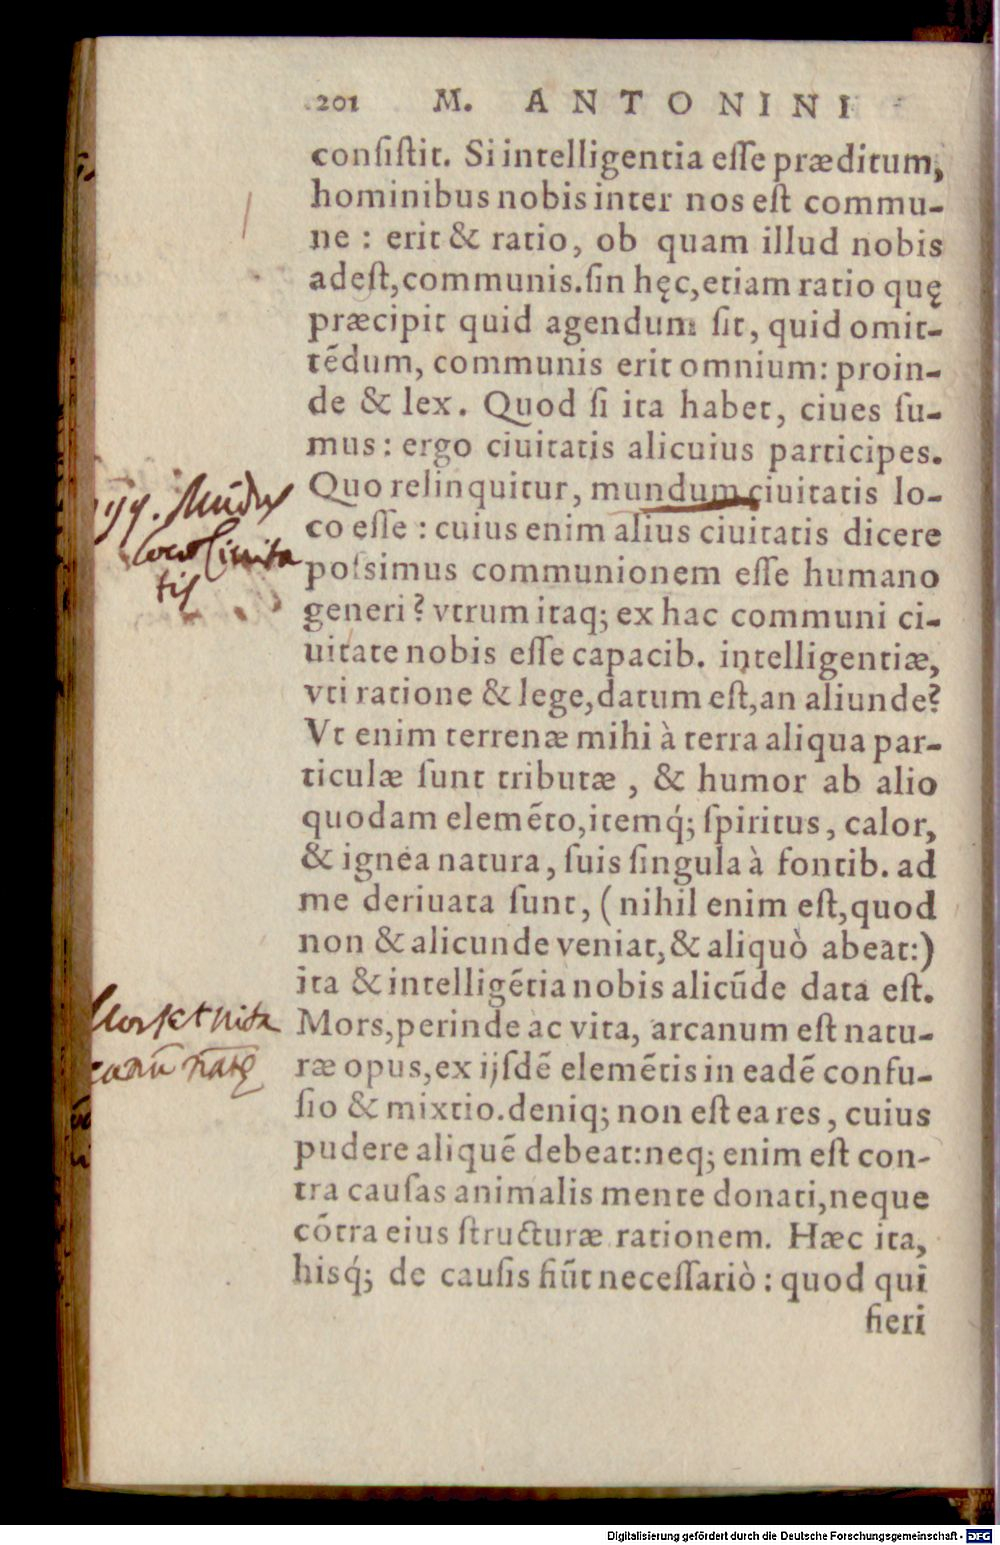 201 M. ANTONINI
conſiſtit. Si intelligentia eſſe præditum,
hominibus nobis inter nos eſt commu-
ne : erit & ratio, ob quam illud nobis
adeſt, communis. ſin hęc, etiam ratio quę
præcipit quid agendum ſit, quid omit-
tēdum, communis erit omnium: proin-
de & lex. Quod ſi ita habet, ciues ſu-
mus : ergo ciuitatis alicuius participes.
Quo relinquitur, mundum ciuitatis lo-
co eſſe : cuius enim alius ciuitatis dicere
poſsimus communionem eſſe humano
generi? vtrum itaq; ex hac communi ci-
uitate nobis eſſe capacib. intelligentiæ,
vti ratione & lege, datum eſt, an aliunde?
Vt enim terrenæ mihi à terra aliqua par-
ticulæ ſunt tributæ, & humor ab alio
quodam elemēto, itemq́; ſpiritus, calor,
& ignea natura, ſuis ſingula à fontib. ad
me deriuata ſunt, (nihil enim eſt, quod
non & alicunde veniat, & aliquò abeat:)
ita & intelligētia nobis alicūde data eſt.
Mors, perinde ac vita, arcanum eſt natu-
ræ opus, ex ijſdē elemētis in eadē confu-
ſio & mixtio. deniq; non eſt ea res, cuius
pudere aliquē debeat: neq; enim eſt con-
tra cauſas animalis mente donati, neque
cōtra eius ſtructuræ rationem. Hæc ita,
hisq́; de cauſis fiūt neceſſariò : quod qui
fieri
Mūdus
loco Ciuita
tis
Mors et vita
Digitalisierung gefördert durch die Deutsche Forschungsgemeinschaft - DFG